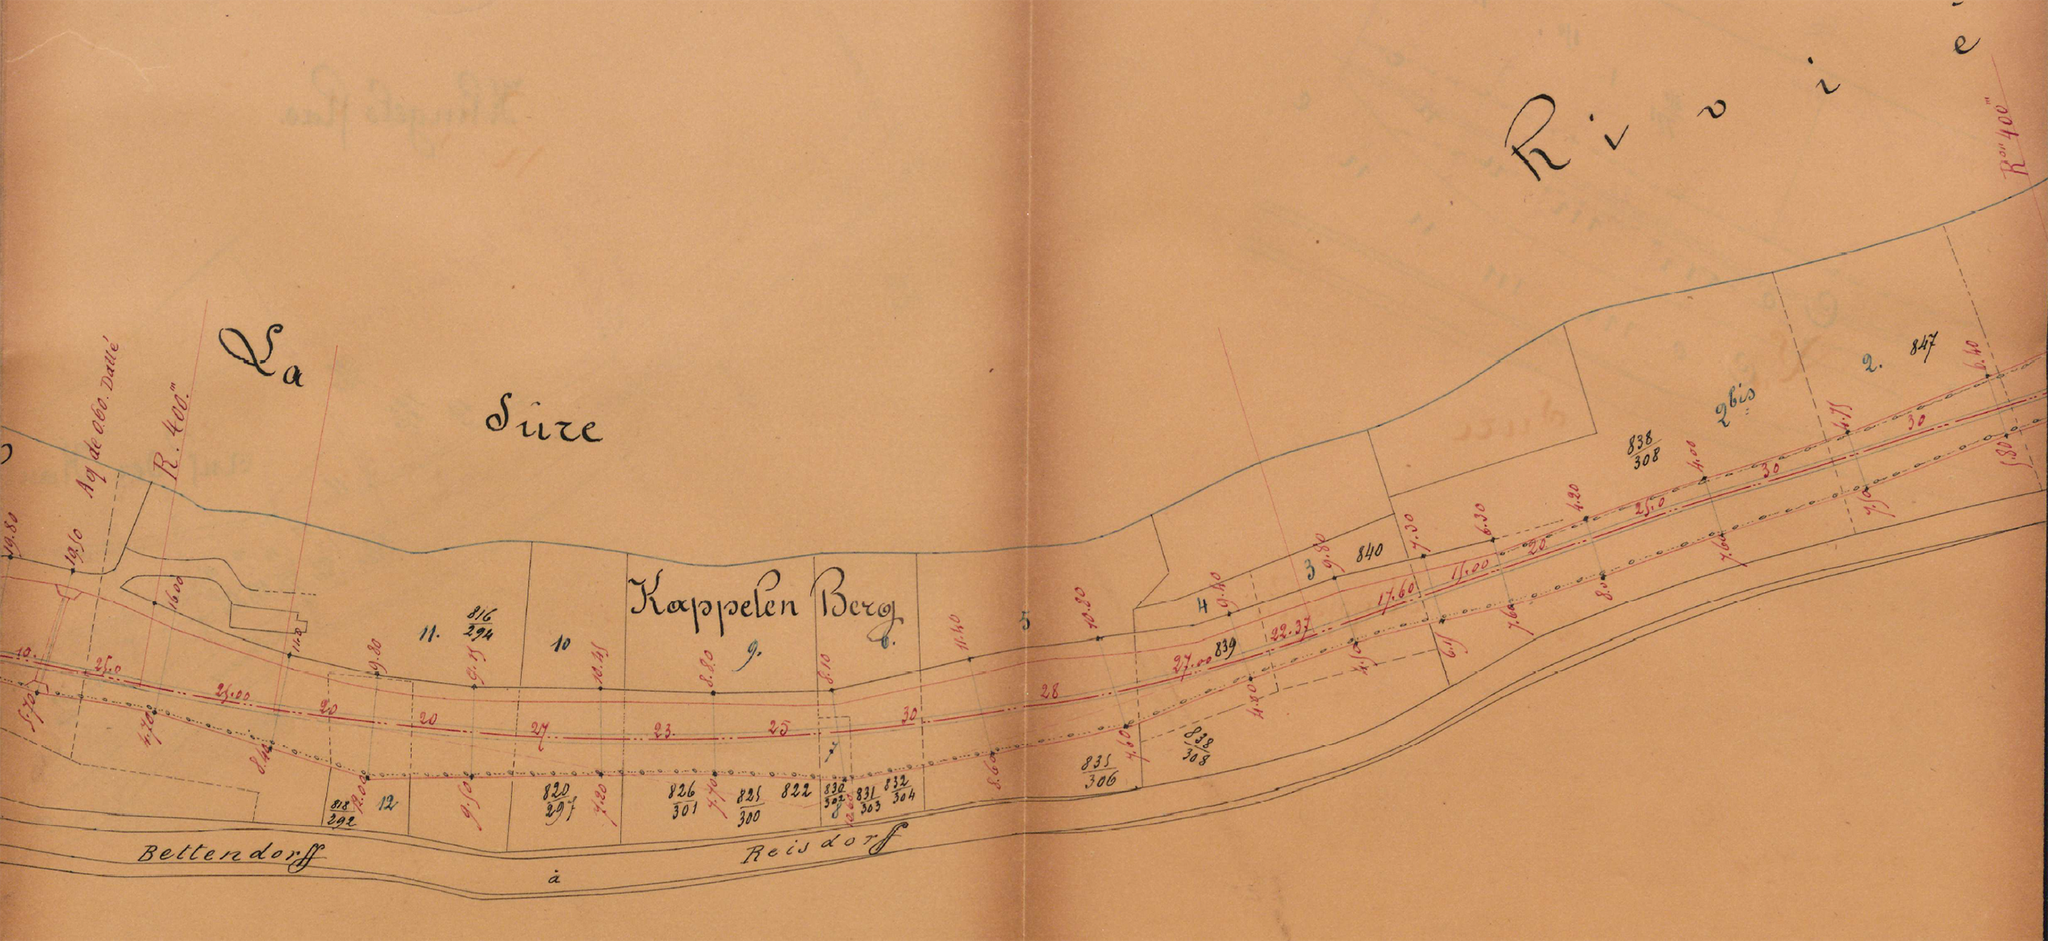 La
Sûre
Riviè
Rᵒⁿ 400ᵐ
Aq de 0.60. Dallé
R. 400.ᵐ
Kappelen Berg
19.80
19.50
16.00
11.
816
294
10
9.
5
4
3
840
838
308
2bis
2.
847
9.80
9.15
10.45
8.80
8.10
11.40
10.80
9.40
9.80
7.30
6.30
4.20
4.00
4.75
6.40
10.
25.0
25.00
20
20
27
23.
25
30
28
27.00
839
22.37
17.60
15.00
20
25.0
30
30
5.70
4.70
8.40
12.00
9.50
7.20
7.70
8.60
7.60
4.20
4.50
6.15
7.60
8.0
7.60
7.50
5.80
818
292
12
820
297
826
301
825
300
822
830
302
8
831
303
832
304
835
306
838
308
Bettendorff
à
Reisdorff